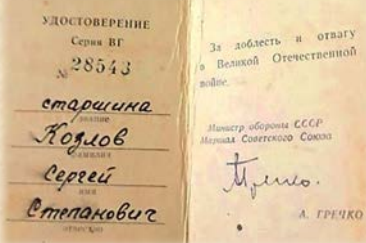 УДОСТОВЕРЕНИЕ
Серия ВГ
№ 28543
старшина
звание
Козлов
фамилия
Сергей
имя
Степанович
отчество
За доблесть и отвагу
в Великой Отечественной
войне.
Министр обороны СССР
Маршал Советского Союза
Гречко.
А. ГРЕЧКО